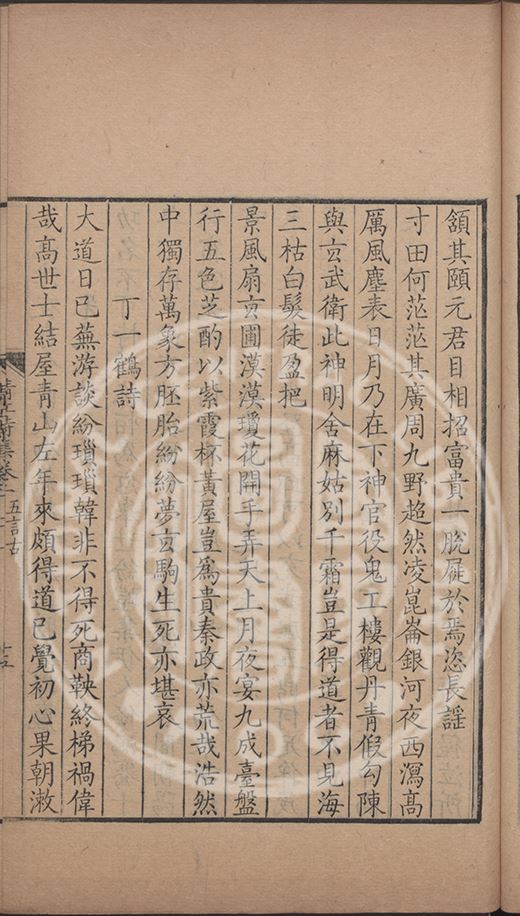 頷其頤元君日相招富貴一脫屣於焉恣長謡
寸田何茫茫其廣周九野超然凌崑崙銀河夜西瀉高
厲風塵表日月乃在下神官役鬼工樓觀丹青假勾陳
與玄武衛此神明舍麻姑别千霜豈是得道者不見海
三枯白髮徒盈把
景風扇玄圃漠漠瓊花開手弄天上月夜宴九成臺盤
行五色芝酌以紫霞杯黃屋豈爲貴秦政亦荒哉浩然
中獨存萬象方胚胎紛紛夢玄駒生死亦堪哀
丁一鶴詩
大道日已蕪游談紛瑣瑣韓非不得死商鞅終梯禍偉
哉高世士結屋青山左年來頗得道已覺初心果朝漱
五言古